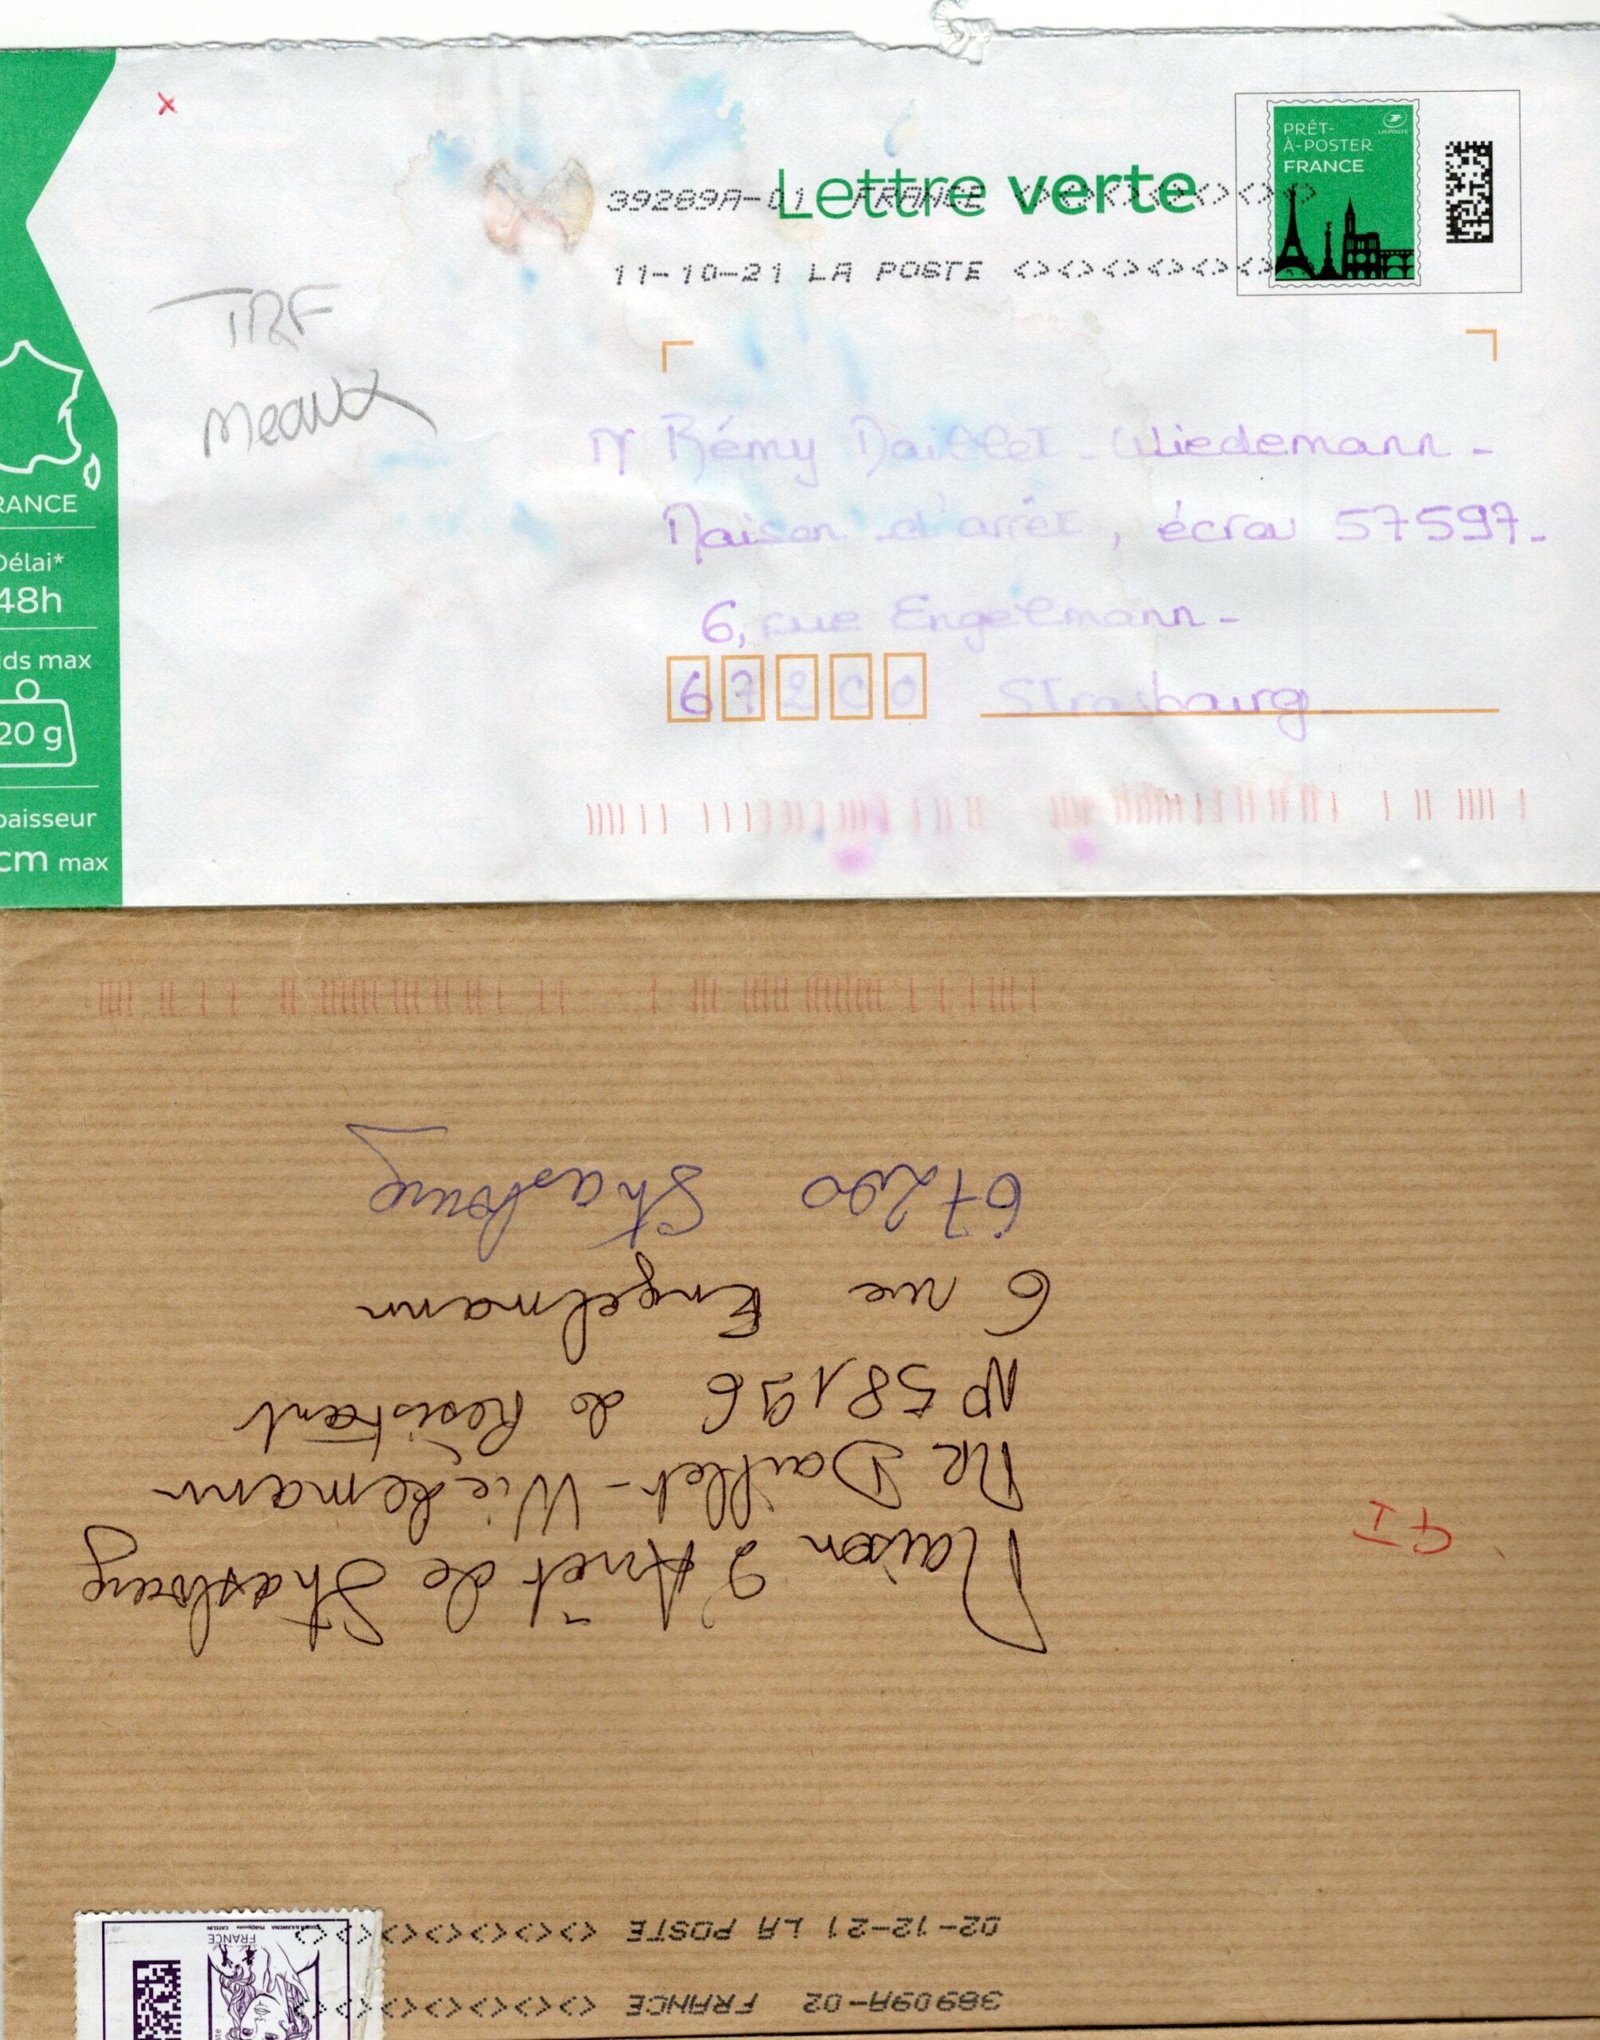 PRÊT-
À-POSTER
FRANCE
LA POSTE
Lettre verte
39289A-01 FRANCE
11-10-21 LA POSTE
TRF
Meaux
Mr Rémy Daillet-Wiedemann-
Maison d'arrêt, écrou 57597-
6, rue Engelmann-
67200 Strasbourg
RANCE
Délai*
48h
ids max
20 g
paisseur
cm max
Maison d'Arrêt de Strasbourg
Mr Daillet-Wiedemann
N° 58196 do Résistant
6 rue Engelmann
67200 Strasbourg
38909A-02 FRANCE
02-12-21 LA POSTE
FRANCE